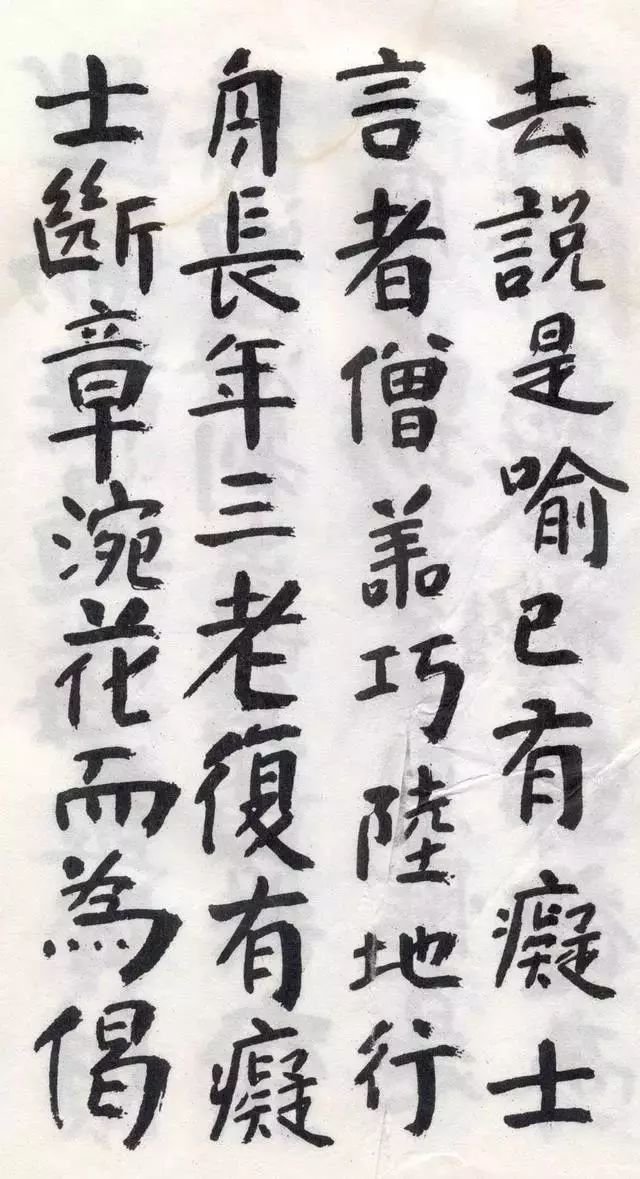 去説是喻已有癡士
言者僧善巧陸地行
舟長年三老復有癡
士斷章涴花而為偈